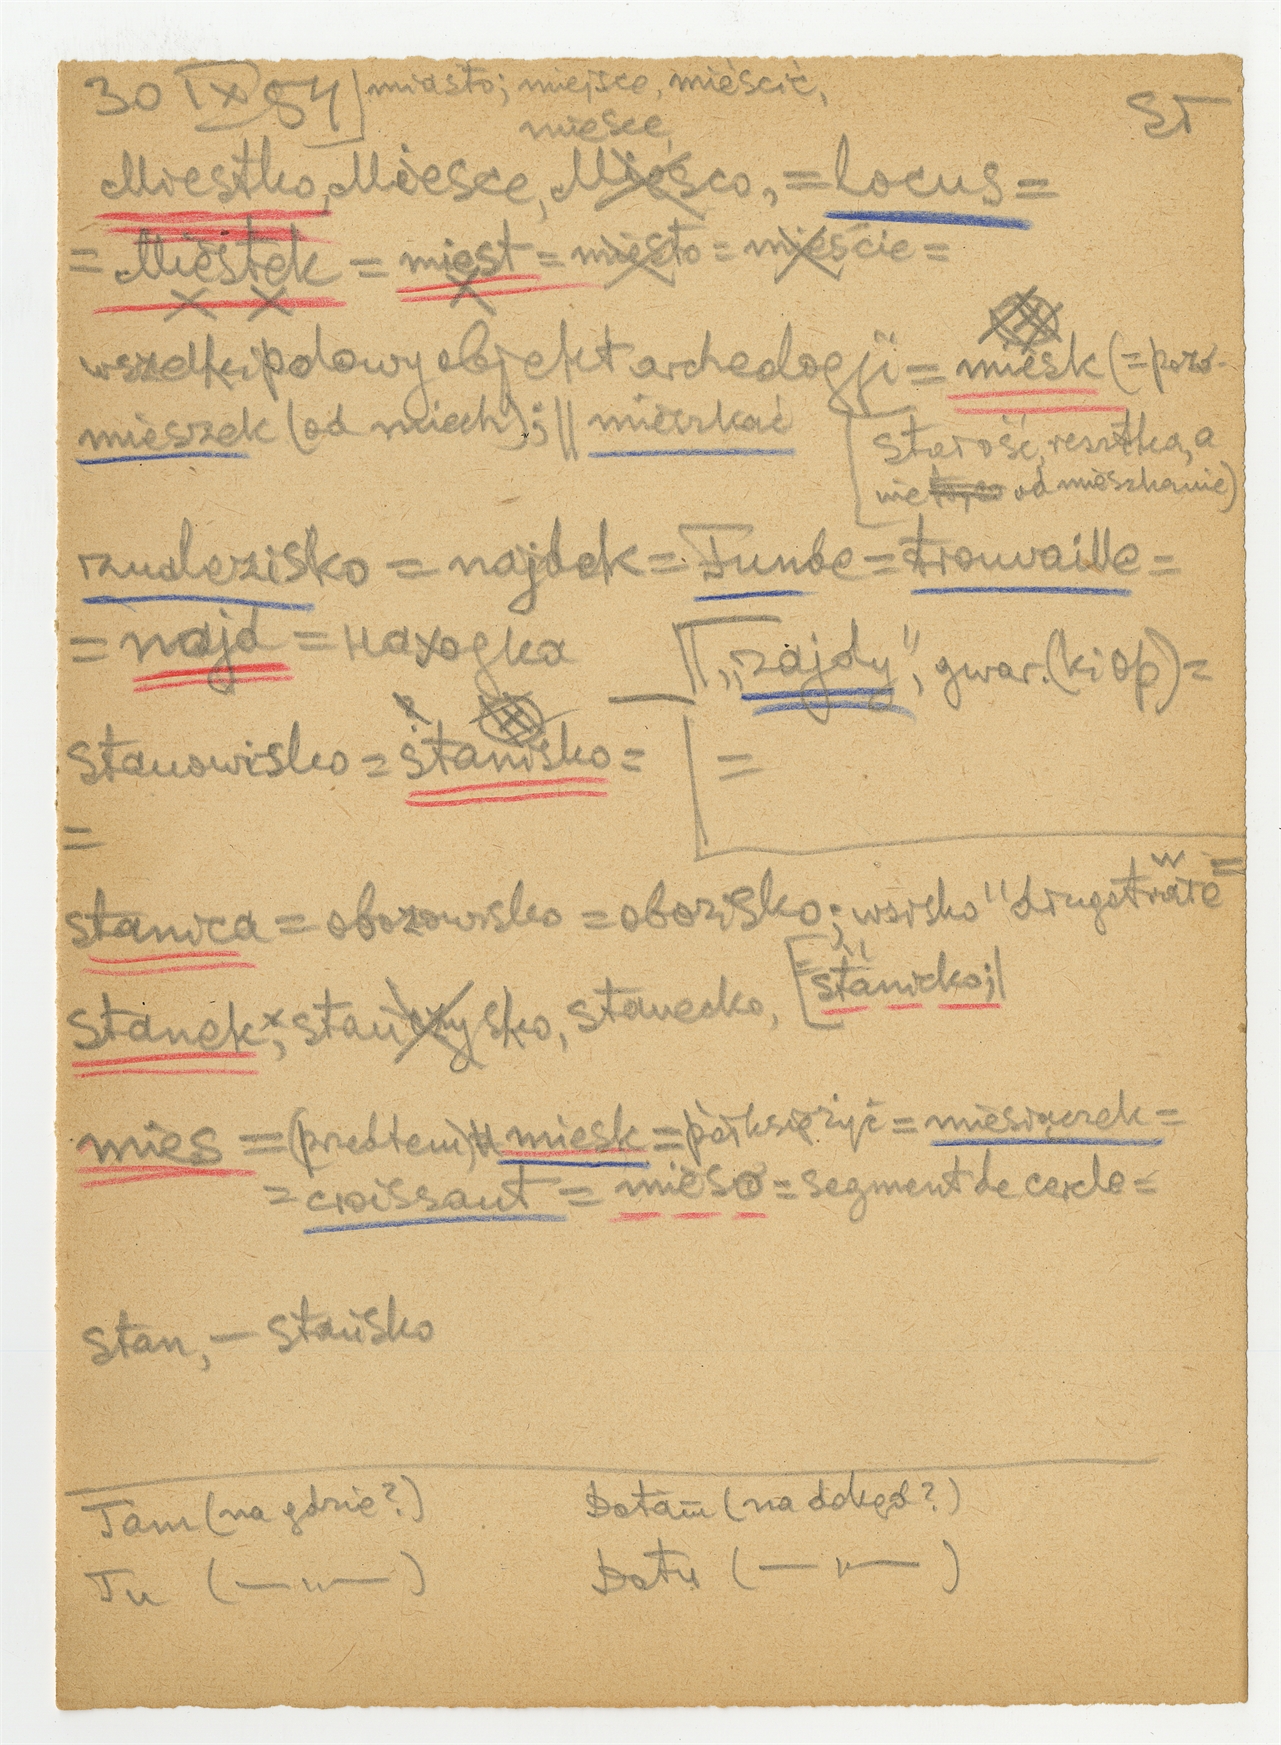 30 IX 54] miasto; miejsce, mieścić,
miesce,
ST
Miestko, Miesce, Mieśco, = locus =
= Miestek = miest = miesto = mieście =
wszelki polowy objekt archeologji = miesk (= pozo-
mieszek (od miech); || mieszkać
starość, resztka, a
nie od mieszkanie)
znalezisko = najdek = Funde = trouvaille =
= najd = находка
„zajdy", gwar. (kiop) =
stanowisko = stanisko = =
=
stanica = obozowisko = obozisko; wsisko
stanicko;
Stanek, stańczysko, stanecko,
mies = (przedtem) miesk = półksiężyc = miesiączek =
= croissant = mieso = segment de cercle =
stan, — stańsko
Tam (na gdzie?) Dotam (na dokąd?)
Tu (— „ —) Dotu (— „ —)